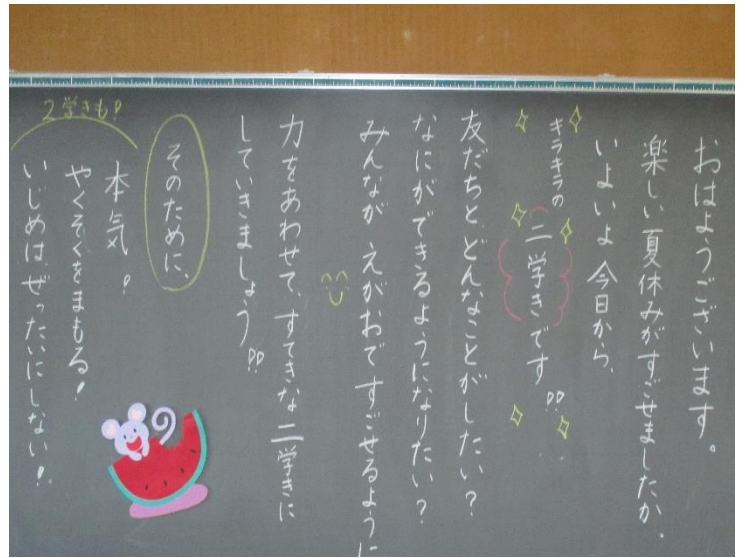 おはようございます。
楽しい夏休みがすごせましたか。
いよいよ今日から、
キラキラの
二学きです!!
友だちと、どんなことがしたい?
なにができるようになりたい?
みんなが えがおですごせるように
力をあわせて、すてきな二学きに
していきましょう!!
そのために、
2学きも!
本気!
やくそくをまもる!
いじめは、ぜったいにしない!